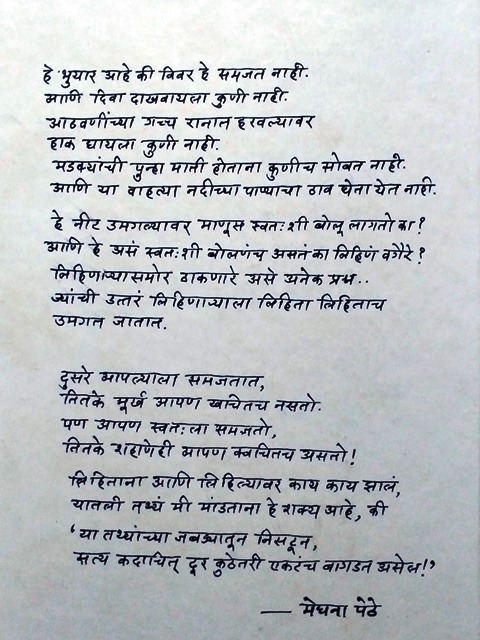 हे भुयार आहे की विवर हे समजत नाही.
आणि दिवा दाखवायला कुणी नाही.
आठवणींच्या गच्च रानात हरवल्यावर
हाक घायला कुणी नाही.
मडक्यांची पुन्हा माती होताना कुणीच सोबत नाही.
आणि या वाहत्या नदीच्या पाण्याचा ठाव घेता येत नाही.
हे नीट उमगल्यावर माणूस स्वतःशी बोलू लागतो का?
आणि हे असं स्वतःशी बोलणंच असतं का लिहिणं वगैरे?
लिहिणाऱ्यासमोर ठाकणारे असे अनेक प्रश्न..
ज्यांची उत्तरं लिहिणाऱ्याला लिहिता लिहिताच
उमगत जातात.
दुसरे आपल्याला समजतात,
तितके मूर्ख आपण खचितच नसतो.
पण आपण स्वतःला समजतो,
तितके शहाणेही आपण क्वचितच असतो!
लिहिताना आणि लिहिल्यावर काय काय झालं,
यातली तथ्यं मी मांडताना हे शक्य आहे, की
'या तथ्यांच्या जबड्यातून निसटून,
सत्य कदाचित् दूर कुठेतरी एकटंच बागडत असेल!'
— मेघना पेठे